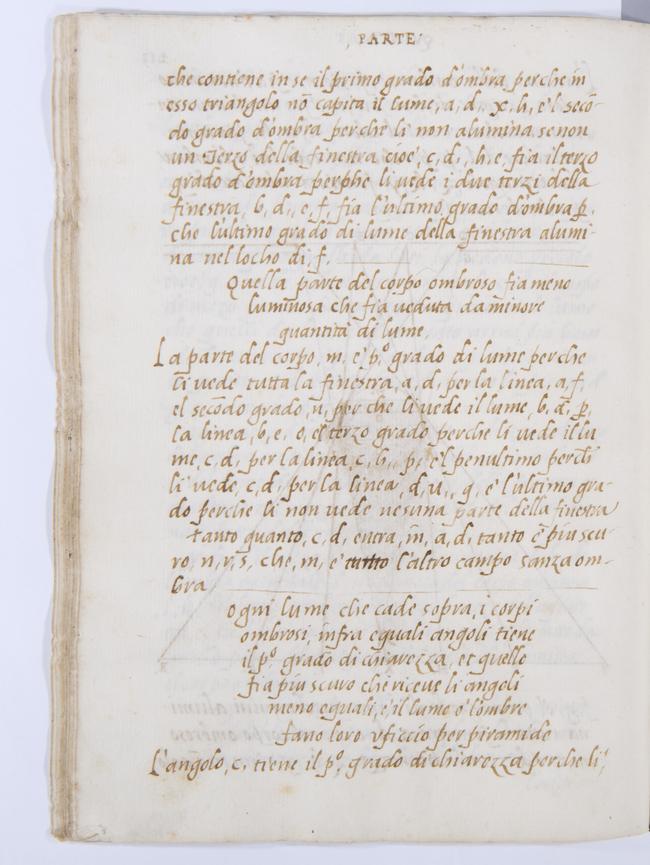 PARTE
che contiene in se il primo grado d'ombra perche in
esso triangolo nō capita il lume, a, d,, x, h, e'l secō-
do grado d'ombra perche li non alumina se non
un Terzo della finestra cioe', c, d,, h, e, fia il terzo
grado d'ombra perphe li vede i due terzi della
finestra, b, d,, e, f, fia l'ultimo grado d'ombra p̱.
che l'ultimo grado di lume della finestra alumi-
na nel locho di, f.
Quella parte del corpo ombroso fia meno
luminosa che fia veduta da minore
quantità di lume.
La parte del corpo, m, e' p.º grado di lume perche
li vede tutta la finestra, a, d, per la linea, a, f,
el secōdo grado, n, perche li vede il lume, b, d, p̱.
la linea, b, e, o, el terzo grado perche li vede il lu
me, c, d, per la linea, c, h,, p, e'l penultimo perch̄
li vede, c, d, per la linea, d, u,, q, e' l'ultimo gra-
do perche li non vede nesuna parte della finestra
tanto quanto, c, d, entra, in, a, d, tanto e' piu scu-
ro, n, r, s, che, m, e' tutto l'altro campo sanza om-
bra
ogni lume che cade sopra, i corpi
ombrosi, infra equali angoli tiene
il p.º grado di chiarezza, et quello
fia piu scuro che riceve li angoli
meno equali, e' il lume o' l'ombre
fano loro uficcio per piramide
L'angolo, c, tiene il p.º grado di chiarezza perche li